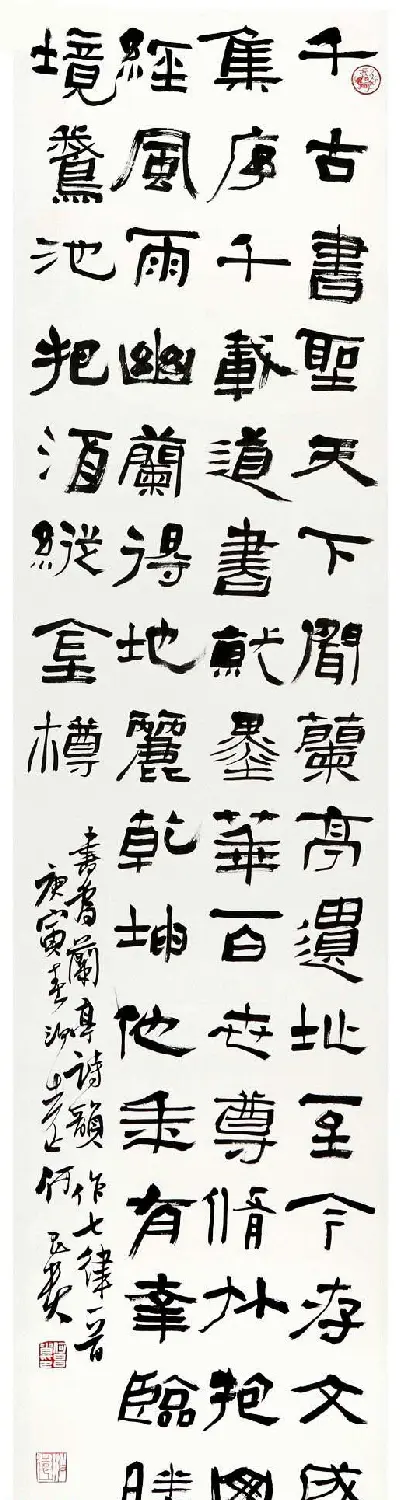 千古書聖天下聞蘭亭遺址至今存文成
集序千載道書就墨華百世尊脩竹抱
經風雨幽蘭得地麗乾坤他年有幸臨勝
境鵞池把酒縱金樽
蘭亭詩韻作七律一首
庚寅春何